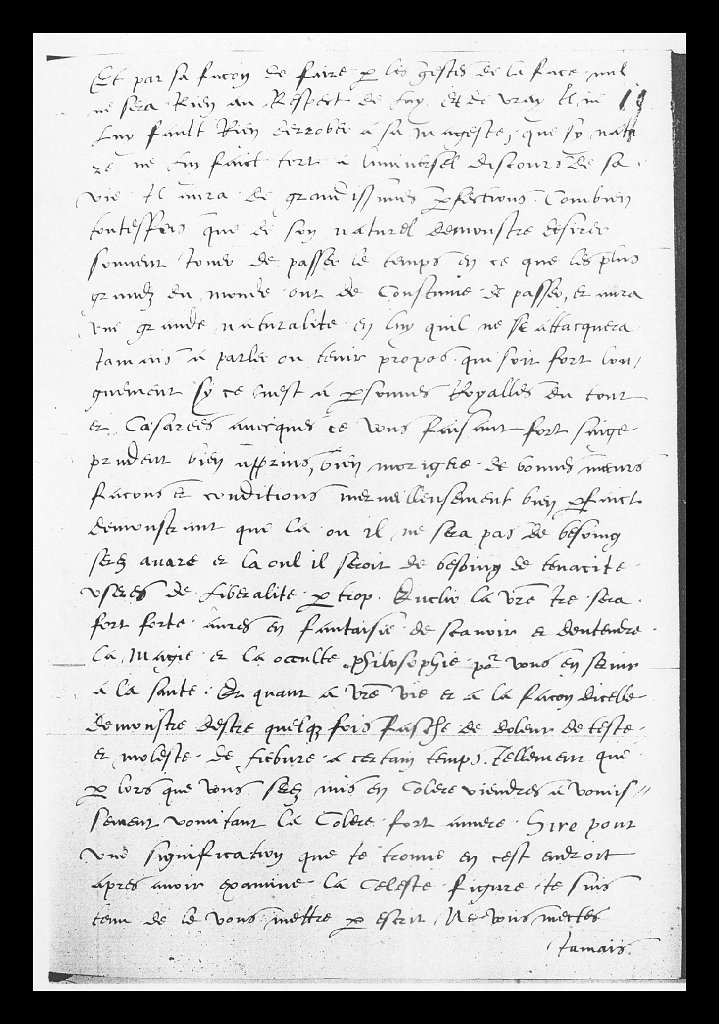 Et par sa facon de faire p les gestes de la face nul
ne sera Rien au Respect de luy, Et de vray Il ne 19
luy fault Rien desrober a sa mageste, que sy natu
re ne luy faict tort a luniversel discours de sa
vie Il aura de grandissimes pfections. Combien
touteffois que de son naturel demonstre desirer
souvent Jouer de passer le temps en ce que les plus
grandz du monde ont de Constume de passer, et aura
une grande naturalite en luy quil ne se attacquera
Jamais a parler ou tenir propos qui soit fort lon,
guement sy ce nest a psonnes Royalles du tout
et Cæsarées avecques ce vous faisant fort saige
prudent bien apprins, bien morigere de bonnes mœurs
facons et conditions merveilleusement bien pfaict
demonstrant que la ou il ne sera pas de besoing
serez avare et la oul il seroit de besoing de tenacite
userés de liberalite p trop. la vre tre sera
fort forte aures en fantaisie de scavoir et dentendre
la Magie et la occulte philosophie pr vous en servir
a la sante. Et quant a vre vie et a la facon dicelle
demonstre destre quelq fois fasche de doleur de teste
et moleste de fiebure a certain temps. Tellement que
p lors que vous serez mis en Colere viendres a vomis"
sement vomitant la Colere fort amere. Sire pour
une signification que Je trouve en cest endroit
apres avoir examine la Celeste figure Je suis
tenu de le vous mettre p escrit. Ne vous mectes
Jamais